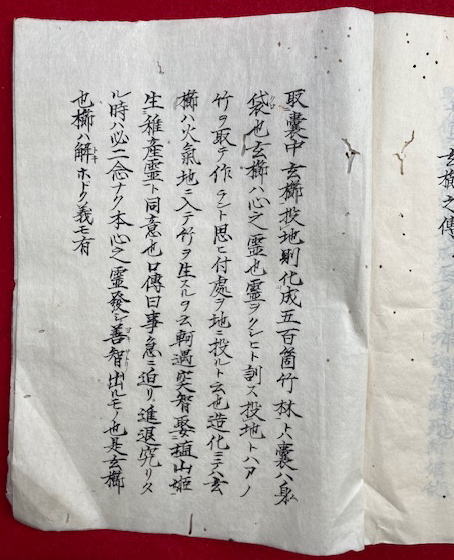 玄櫛之傳
取囊中玄櫛投地則化成五百箇竹林トハ囊ハ身ムクロ
袋也玄櫛ハ心之霊也霊ヲクシヒト訓ス投地トハアノ
竹ヲ取テ作ラント思ヒ付處ヲ地ニ投ルト云也造化ニテハ玄
櫛ハ火氣地ニ入テ竹ヲ生スルヲ云軻遇突智娶埴山姫
生稚産霊ト同意也口傳曰事急ニ迫リ進退究リタ
ル時ハ必二念ナク本心之霊發シ善智出ルモノ也是玄櫛
也櫛ハ解トキホドク義モ有